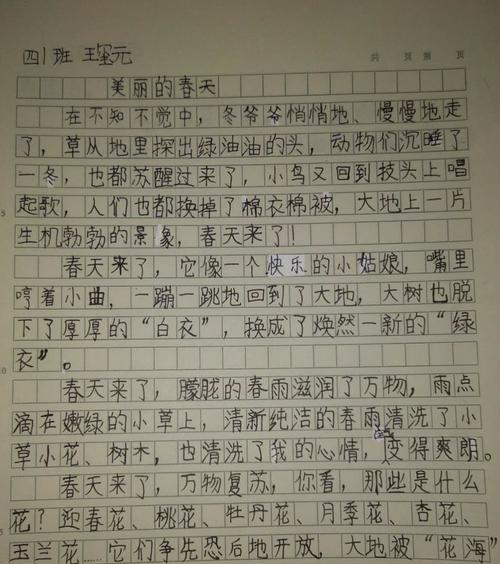 四1班 王玺元
共 页 第 页
美丽的春天
在不知不觉中，冬爷爷悄悄地、慢慢地走
了，草从地里探出绿油油的头，动物们沉睡了
一冬，也都苏醒过来了，小鸟又回到技头上唱
起歌，人们也都换掉了棉衣棉被，大地上一片
5
生机勃勃的景象，春天来了！
春天来了，它像一个快乐的小姑娘，嘴里
哼着小曲，一蹦一跳地回到了大地，大树也脱
下了厚厚的“白衣”，换成了焕然一新的“绿
衣”。
10
春天来了，朦胧的春雨滋润了万物，雨点
滴在嫩绿的小草上，清新纯洁的春雨清洗了小
草小花、树木，也清洗了我的心情，变得爽朗。
春天来了，万物复苏，你看，那些是什么
花？迎春花、桃花、牡丹花、月季花、杏花、
玉兰花……它们争先恐后地开放，大地被“花海”